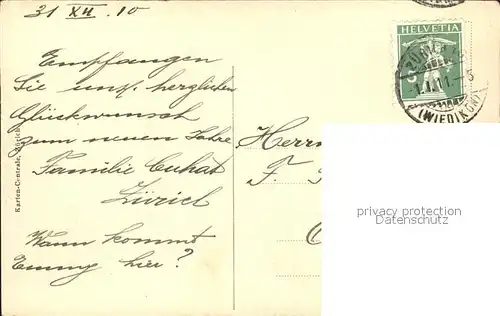 31 XII. 10
Empfangen
Sie uns. herzlichen
Glückwunsch
zum neuen Jahre
Familie Cuhat
Zürich
Wann kommt
Emmy hier?
Karten-Centrale, Zürich
HELVETIA
5
ZÜRICH
1.I.11.-5
(WIEDIKON)
Herrn
F.
privacy protection
Datenschutz